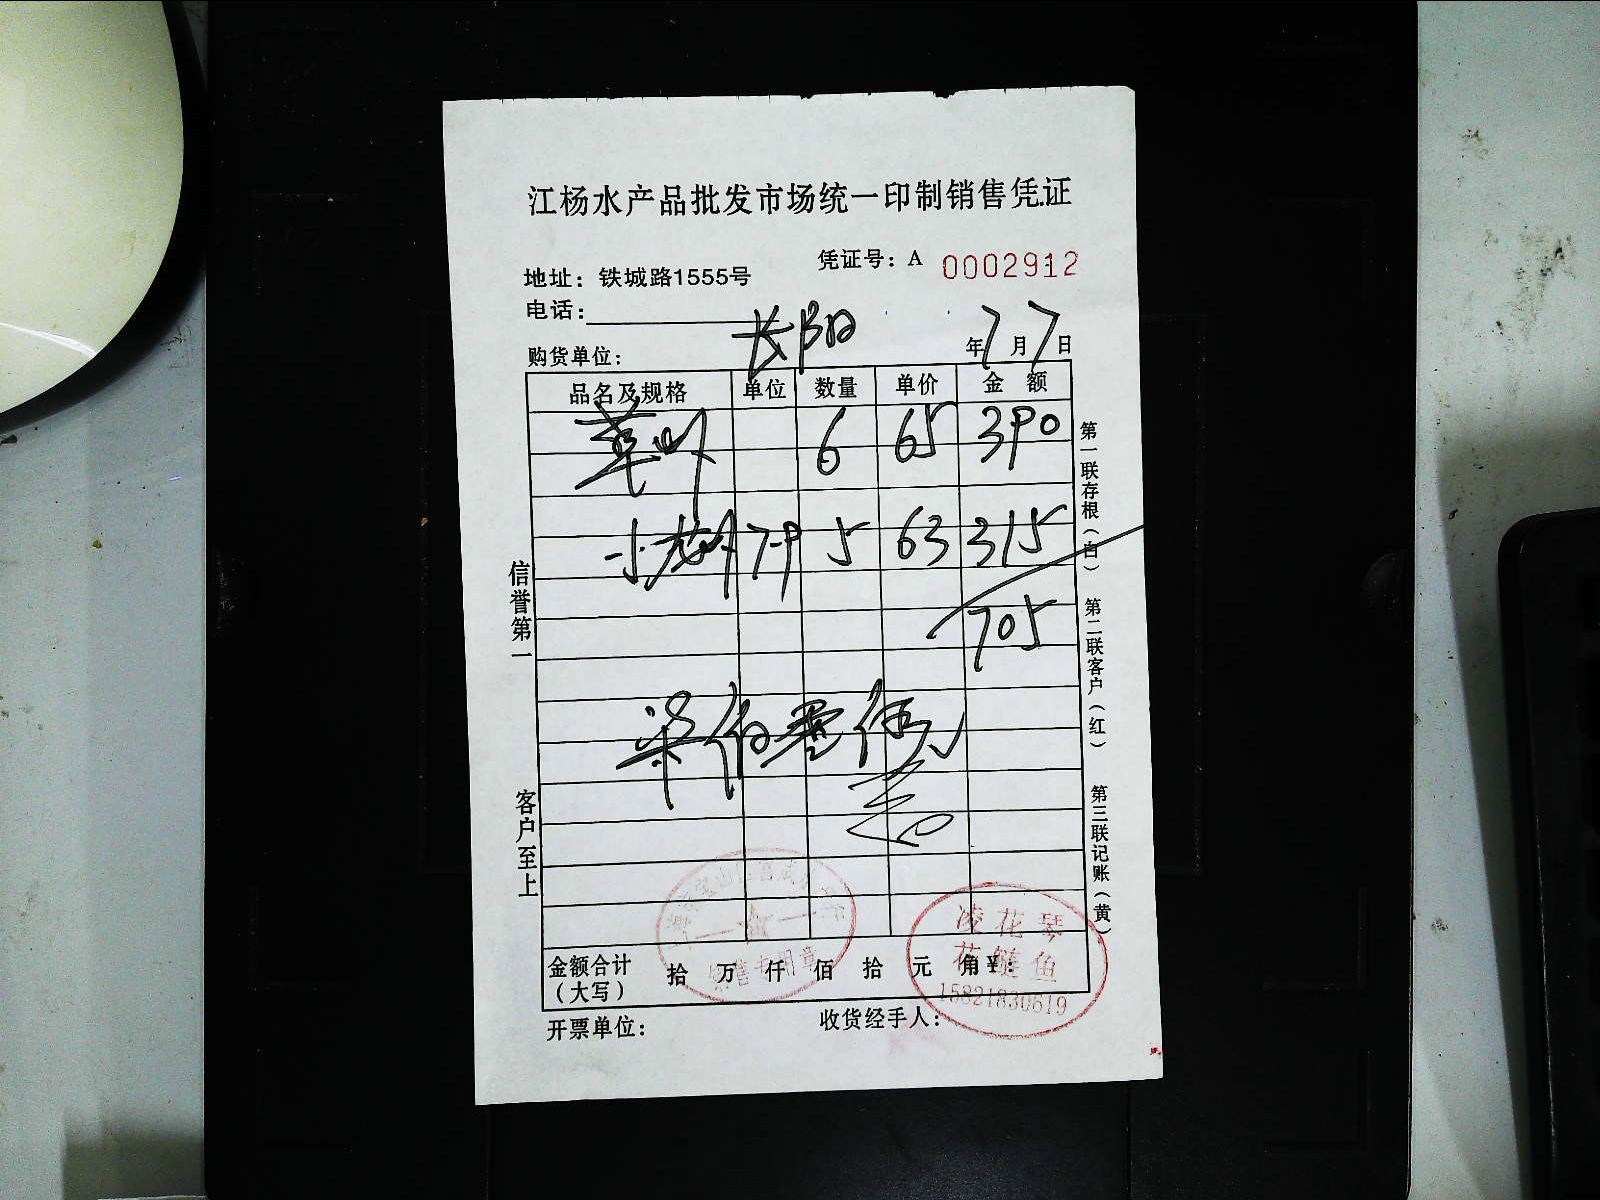 江杨水产品批发市场统一印制销售凭证
凭证号：A 0002912
地址：铁城路1555号
电话：
购货单位： 长阳 年 7 月 7 日
品名及规格 单位 数量 单价 金 额
草 6 65 390
小龙虾 7-9 5 63 315
705
柒佰零伍元
信誉第一
客户至上
第一联存根（白）
第二联客户（红）
第三联记账（黄）
专用章
凌花琴
花鲢鱼
15821830619
金额合计（大写） 拾 万 仟 佰 拾 元 角 ¥：
开票单位：
收货经手人：